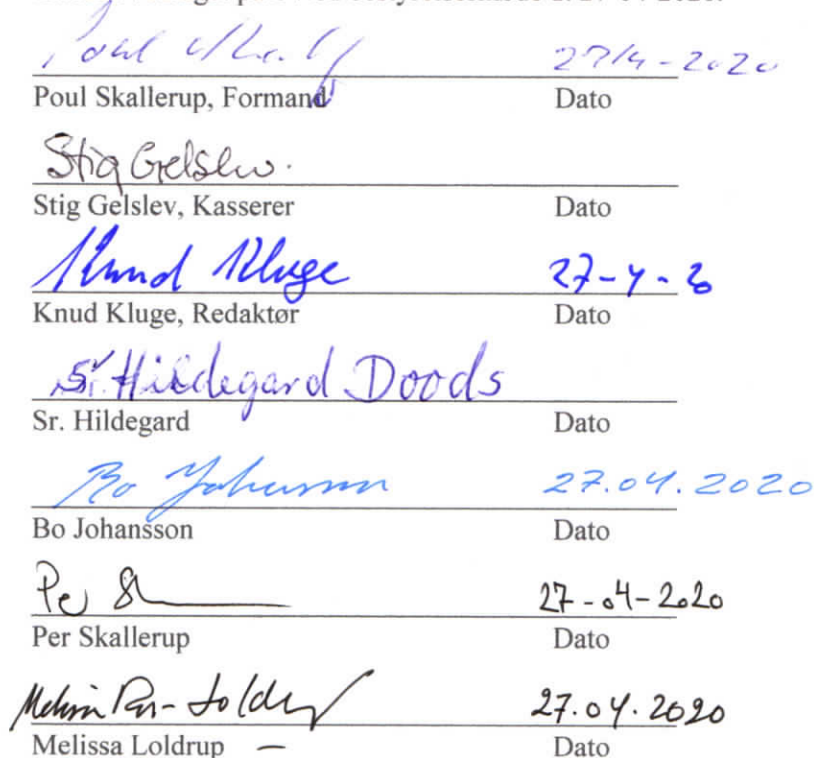 Poul 27/4-2020
Poul Skallerup, Formand Dato
Stig Gelslev.
Stig Gelslev, Kasserer Dato
Knud Kluge 27-4-20
Knud Kluge, Redaktør Dato
Sr. Hildegard Doods
Sr. Hildegard Dato
Bo Johansson 27.04.2020
Bo Johansson Dato
Per 27-04-2020
Per Skallerup Dato
27.04.2020
Melissa Loldrup Dato